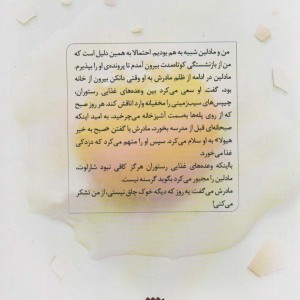 من و مادلین شبیه به هم بودیم. احتمالا به همین دلیل است که
من از بازنشستگی کوتاه‌مدت بیرون آمدم تا پرونده‌ی او را بپذیرم.
مادلین در ادامه از ظلم مادرش به او وقتی دانکن بیرون از خانه
بود، گفت. او سعی می‌کرد بین وعده‌های غذایی رستوران،
چیپس‌های سیب‌زمینی را مخفیانه وارد اتاقش کند. هر روز صبح
که از روی پله‌ها به‌سمت آشپزخانه می‌چرخید، به امید اینکه
صبحانه‌ای قبل از مدرسه بخورد، مادرش با گفتن «صبح به خیر
هیولا» به او سلام می‌کرد. سپس او را متهم می‌کرد که دزدکی
غذا می‌خورد.
بااینکه وعده‌های غذایی رستوران هرگز کافی نبود شارلوت،
مادلین را مجبور می‌کرد بگوید گرسنه نیست.
مادرش می‌گفت یه روز که دیگه خوک چاق نیستی، از من تشکر
می‌کنی!